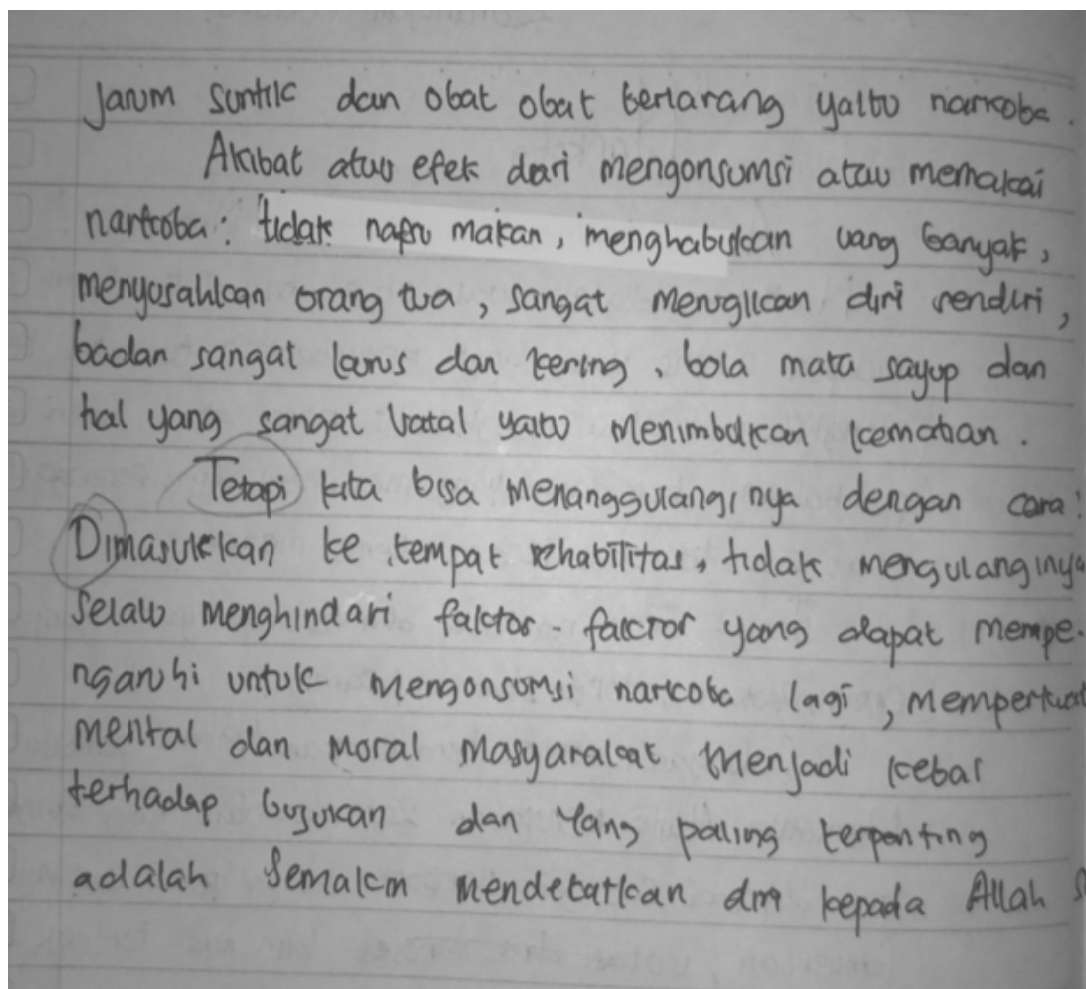 Jarum suntik dan obat obat berlarang yaitu narkoba.
Akibat atau efek dari mengonsumsi atau memakai
narkoba: tidak napsu makan, menghabiskan uang banyak,
menyusahkan orang tua, sangat merugikan diri sendiri,
badan sangat kurus dan kering, bola mata sayup dan
hal yang sangat vatal yaitu menimbulkan kematian.
Tetapi kita bisa menanggulangi nya dengan cara:
Dimasukkan ke tempat rehabilitas, tidak mengulanginya
selalu menghindari faktor-faktor yang dapat mempe-
ngaruhi untuk mengonsumsi narkoba lagi, memperkuat
mental dan moral masyarakat menjadi kebal
terhadap bujukan dan yang paling terpenting
adalah semakin mendekatkan diri kepada Allah